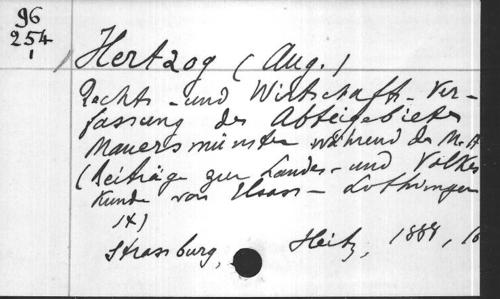 96
254
1
Hertzog (Aug.)
Rechts- und Wirtschafts-Ver-
fassung des Abteigebietes
Mauersmünster während des M. A
(Beiträge zur Landes- und Volkes
kunde von Elsass-Lothringen
IX)
Strassburg, Heitz, 1888,